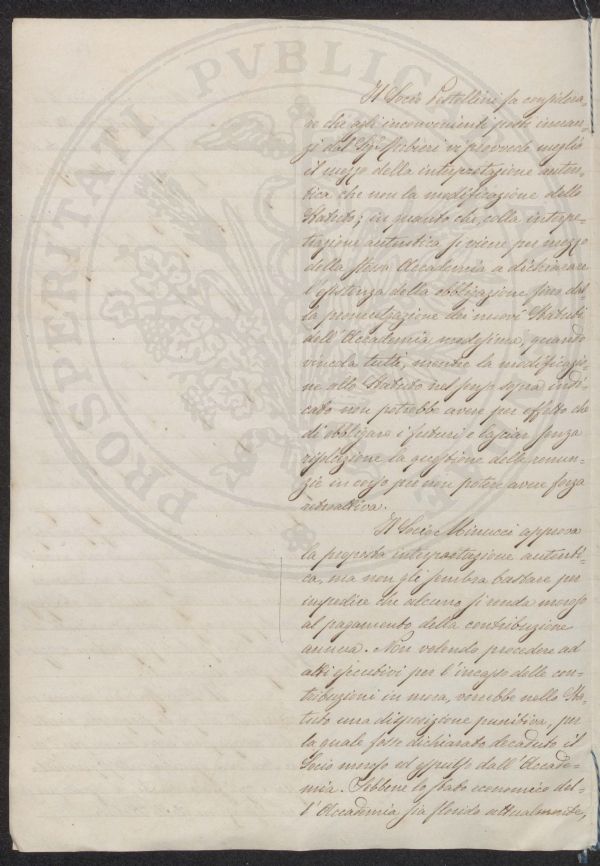 PROSPERITATI PVBLICAE
Il Socio Pestellini fa considera-
re che agli inconvenienti posti innan-
zi dal Sigr. Rubieri vi provvede meglio
il mezzo della interpretazione auten-
tica che non la modificazione dello
Statuto; in quanto che, colla interpe-
trazione autentica si viene per mezzo
della stessa Accademia a dichiarare
l'esistenza della obbligazione fino dal-
la promulgazione dei nuovi Statuti
dell'Accademia medesima, quando
vincola tutti, mentre la modificazio-
ne allo Statuto nel senso sopra indi-
cato non potrebbe avere per effetto che
di obbligare i futuri e lasciar senza
risoluzione la questione delle renun-
zie in corso per non potere avere forza
retroattiva.
Il Socio Minucci approva
la proposta interpretazione autenti-
ca, ma non gli sembra bastare per
impedire che alcuno si renda moroso
al pagamento della contribuzione
annua. Non volendo procedere ad
atti esecutivi per l'incasso delle con-
tribuzioni in mora, vorrebbe nello Sta-
tuto una disposizione punitiva, per
la quale fosse dichiarato decaduto il
Socio moroso ed espulso dall'Accade-
mia. Sebbene lo stato economico del-
l'Accademia sia florido attualmente,